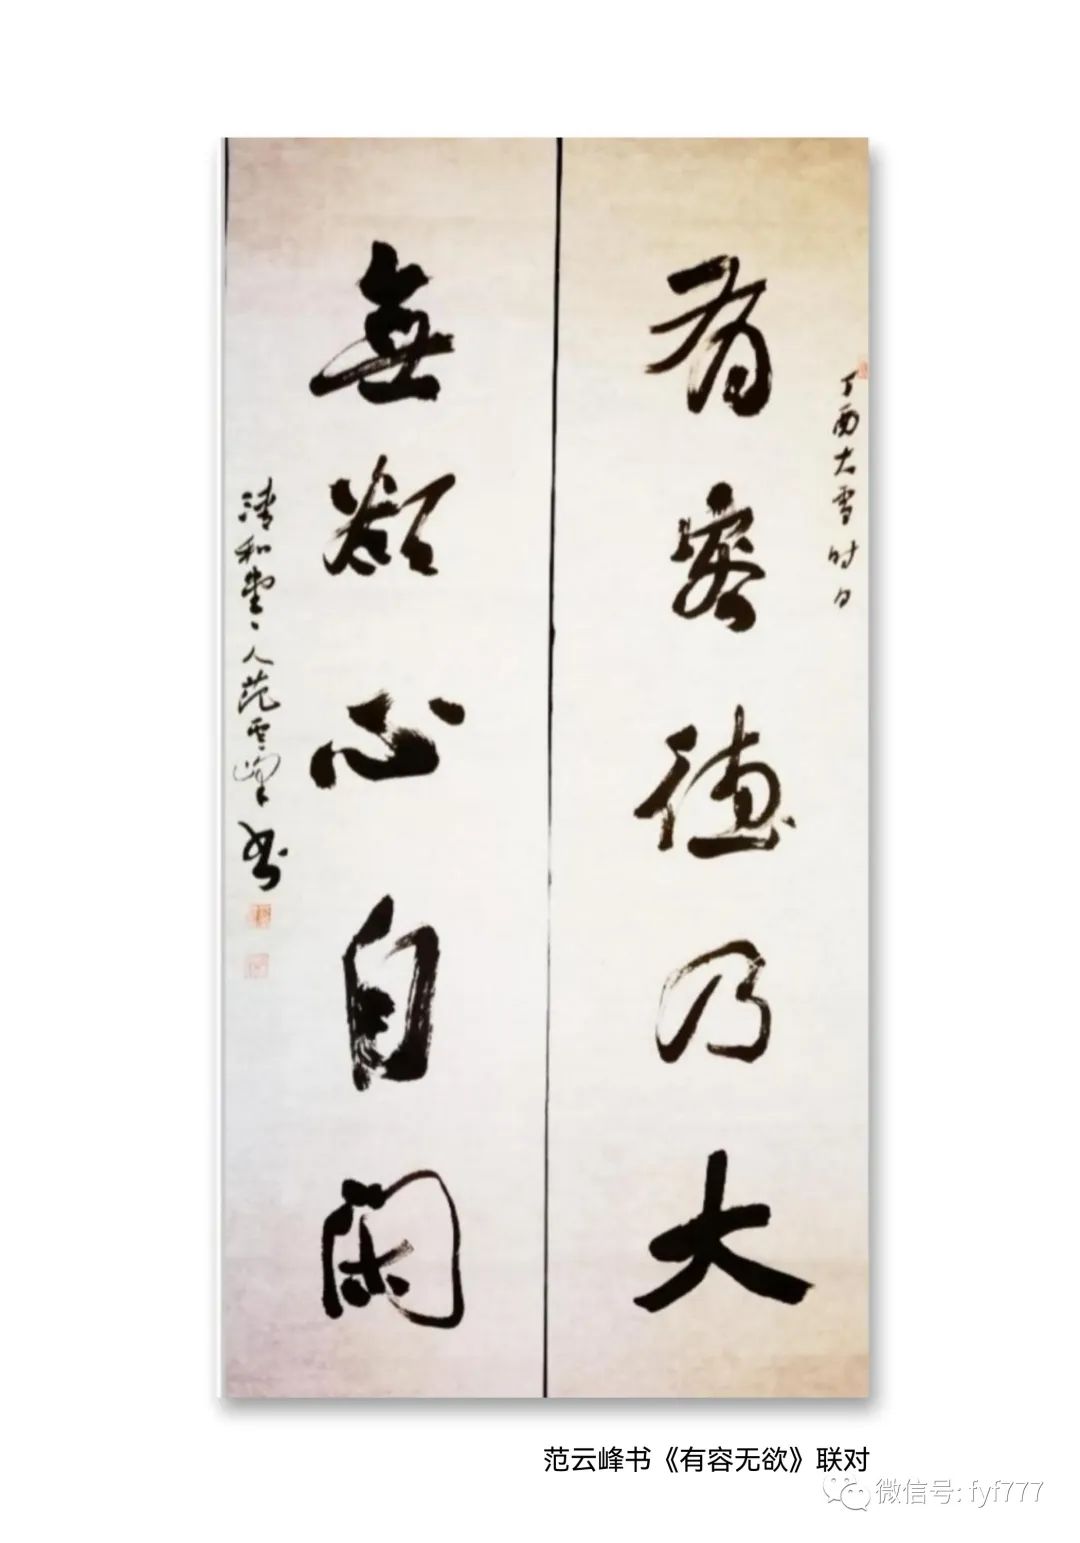 丁酉大雪时日
有容德乃大
無欲心自闲
清和堂主人范雲峰书
范云峰书《有容无欲》联对
微信号: fyf777